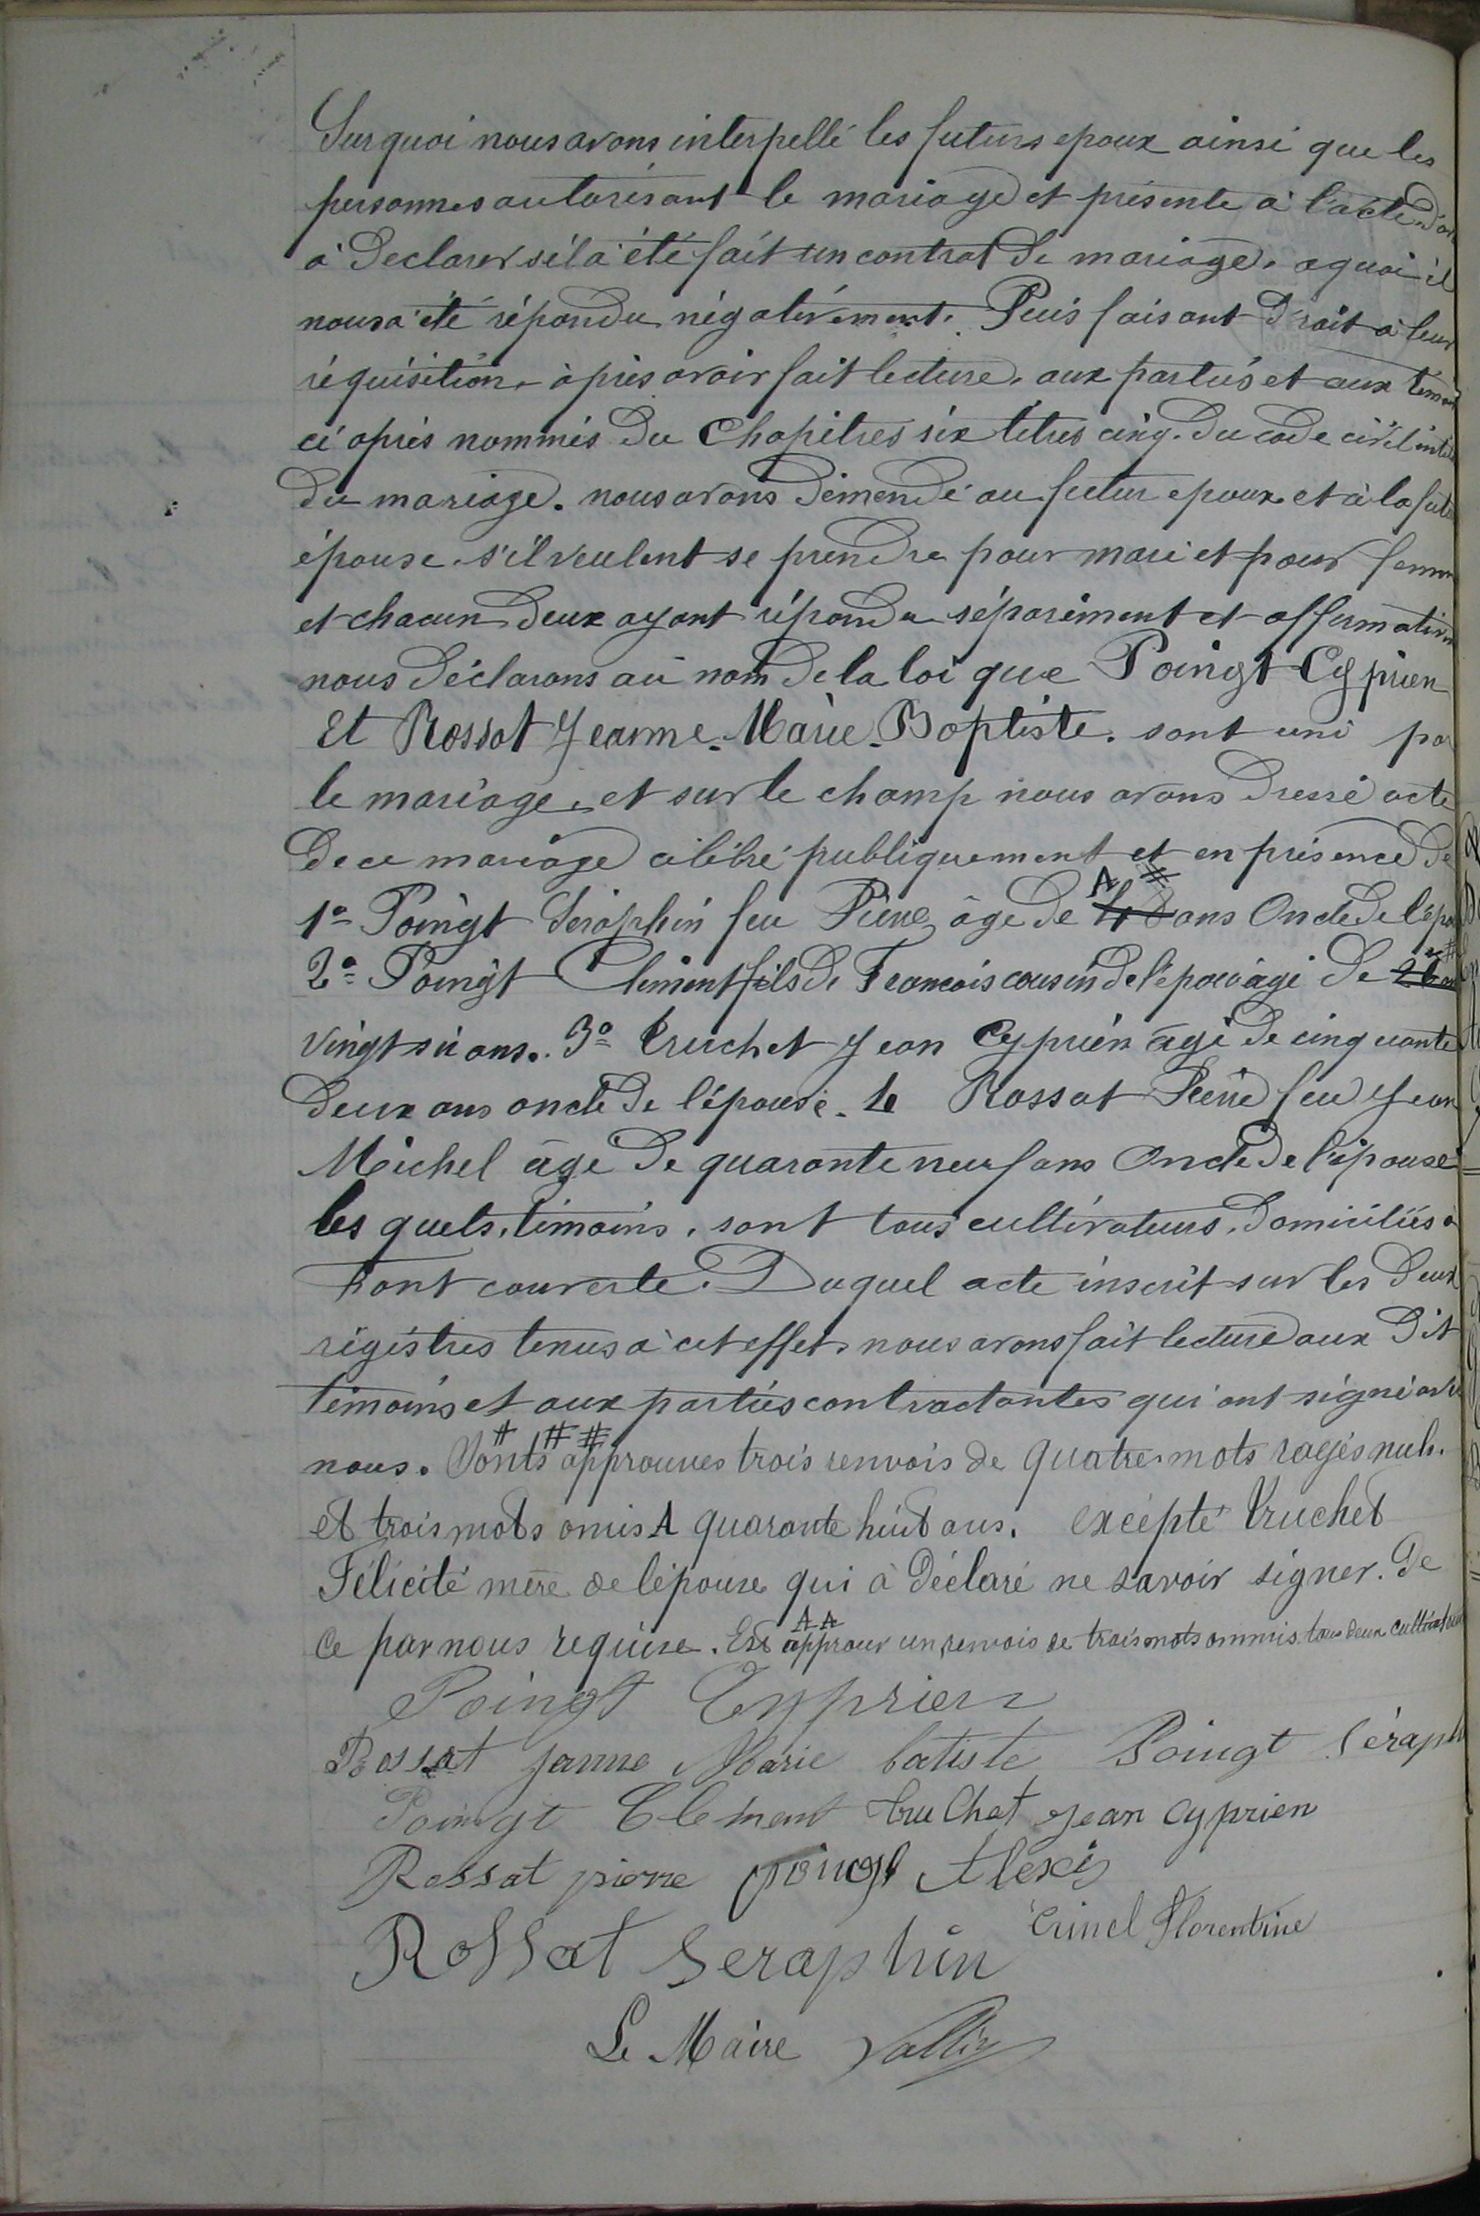 Sur quoi nous avons interpellé les futurs epoux ainsi que les
personnes autorisant le mariage et présente à l'acte d'on
à declarer s'il a été fait un contrat de mariage, a quoi il
nous a été répondu négativement. Puis faisant droit à leur
réquisition, après avoir fait lecture, aux partiés et aux témoi
ci après nommés du Chapitres six titres cinq. du code civil intit
du mariage. nous avons demendé au futur epoux et à la futu
épouse. s'il veulent se prendre pour mari et pour femm
et chacun deux ayant répondu séparément et affirmativem
nous déclarons au nom de la loi que Poingt Cyprien
Et Rossat Jeanne. Marie. Baptiste. sont uni pa
le mariage, et sur le champ nous avons dressé acte
de ce mariage célébré publiquement et en présence de
1° Poingt Séraphin feu Pierre, âge de A # 48 ans Oncle de l'épou
2° Poingt Clément fils de Francois cousin de l'époux âgé de 26 an #
vingt six ans. 3° Truchet Jean Cyprien âgé de cinquante
deux ans oncle de l'épouse. 4e Rossat Pierre feu Jean
Michel âge de quarante neuf ans Oncle de l'épouse
les quels, témoins, sont tous cultivateurs, domiciliés à
Font couverte. Duquel acte inscrit sur les deux
régistres tenus à cet effet, nous avons fait lecture aux dit
témoins et aux partiés contractantes qui ont signé avec
nous. # ## Sonts approuvés trois renvois de quatre mots rayés nuls.
et trois mots omis A quarante huit ans. excépté Truchet
Félicité mère de l'épouse qui à déclaré ne savoir signer. de
ce par nous requise. Est AA approuv un renvois de trois mots ommis. tous deux cultivateurs
Poingt Cyprien
Rossat Janne Marie batiste Poingt Séraph
Poingt Clément truChet Jean Cyprien
Rossat pierre poingt Alexis
Crinel Florentine
Rossat Seraphin
Le Maire Vallin